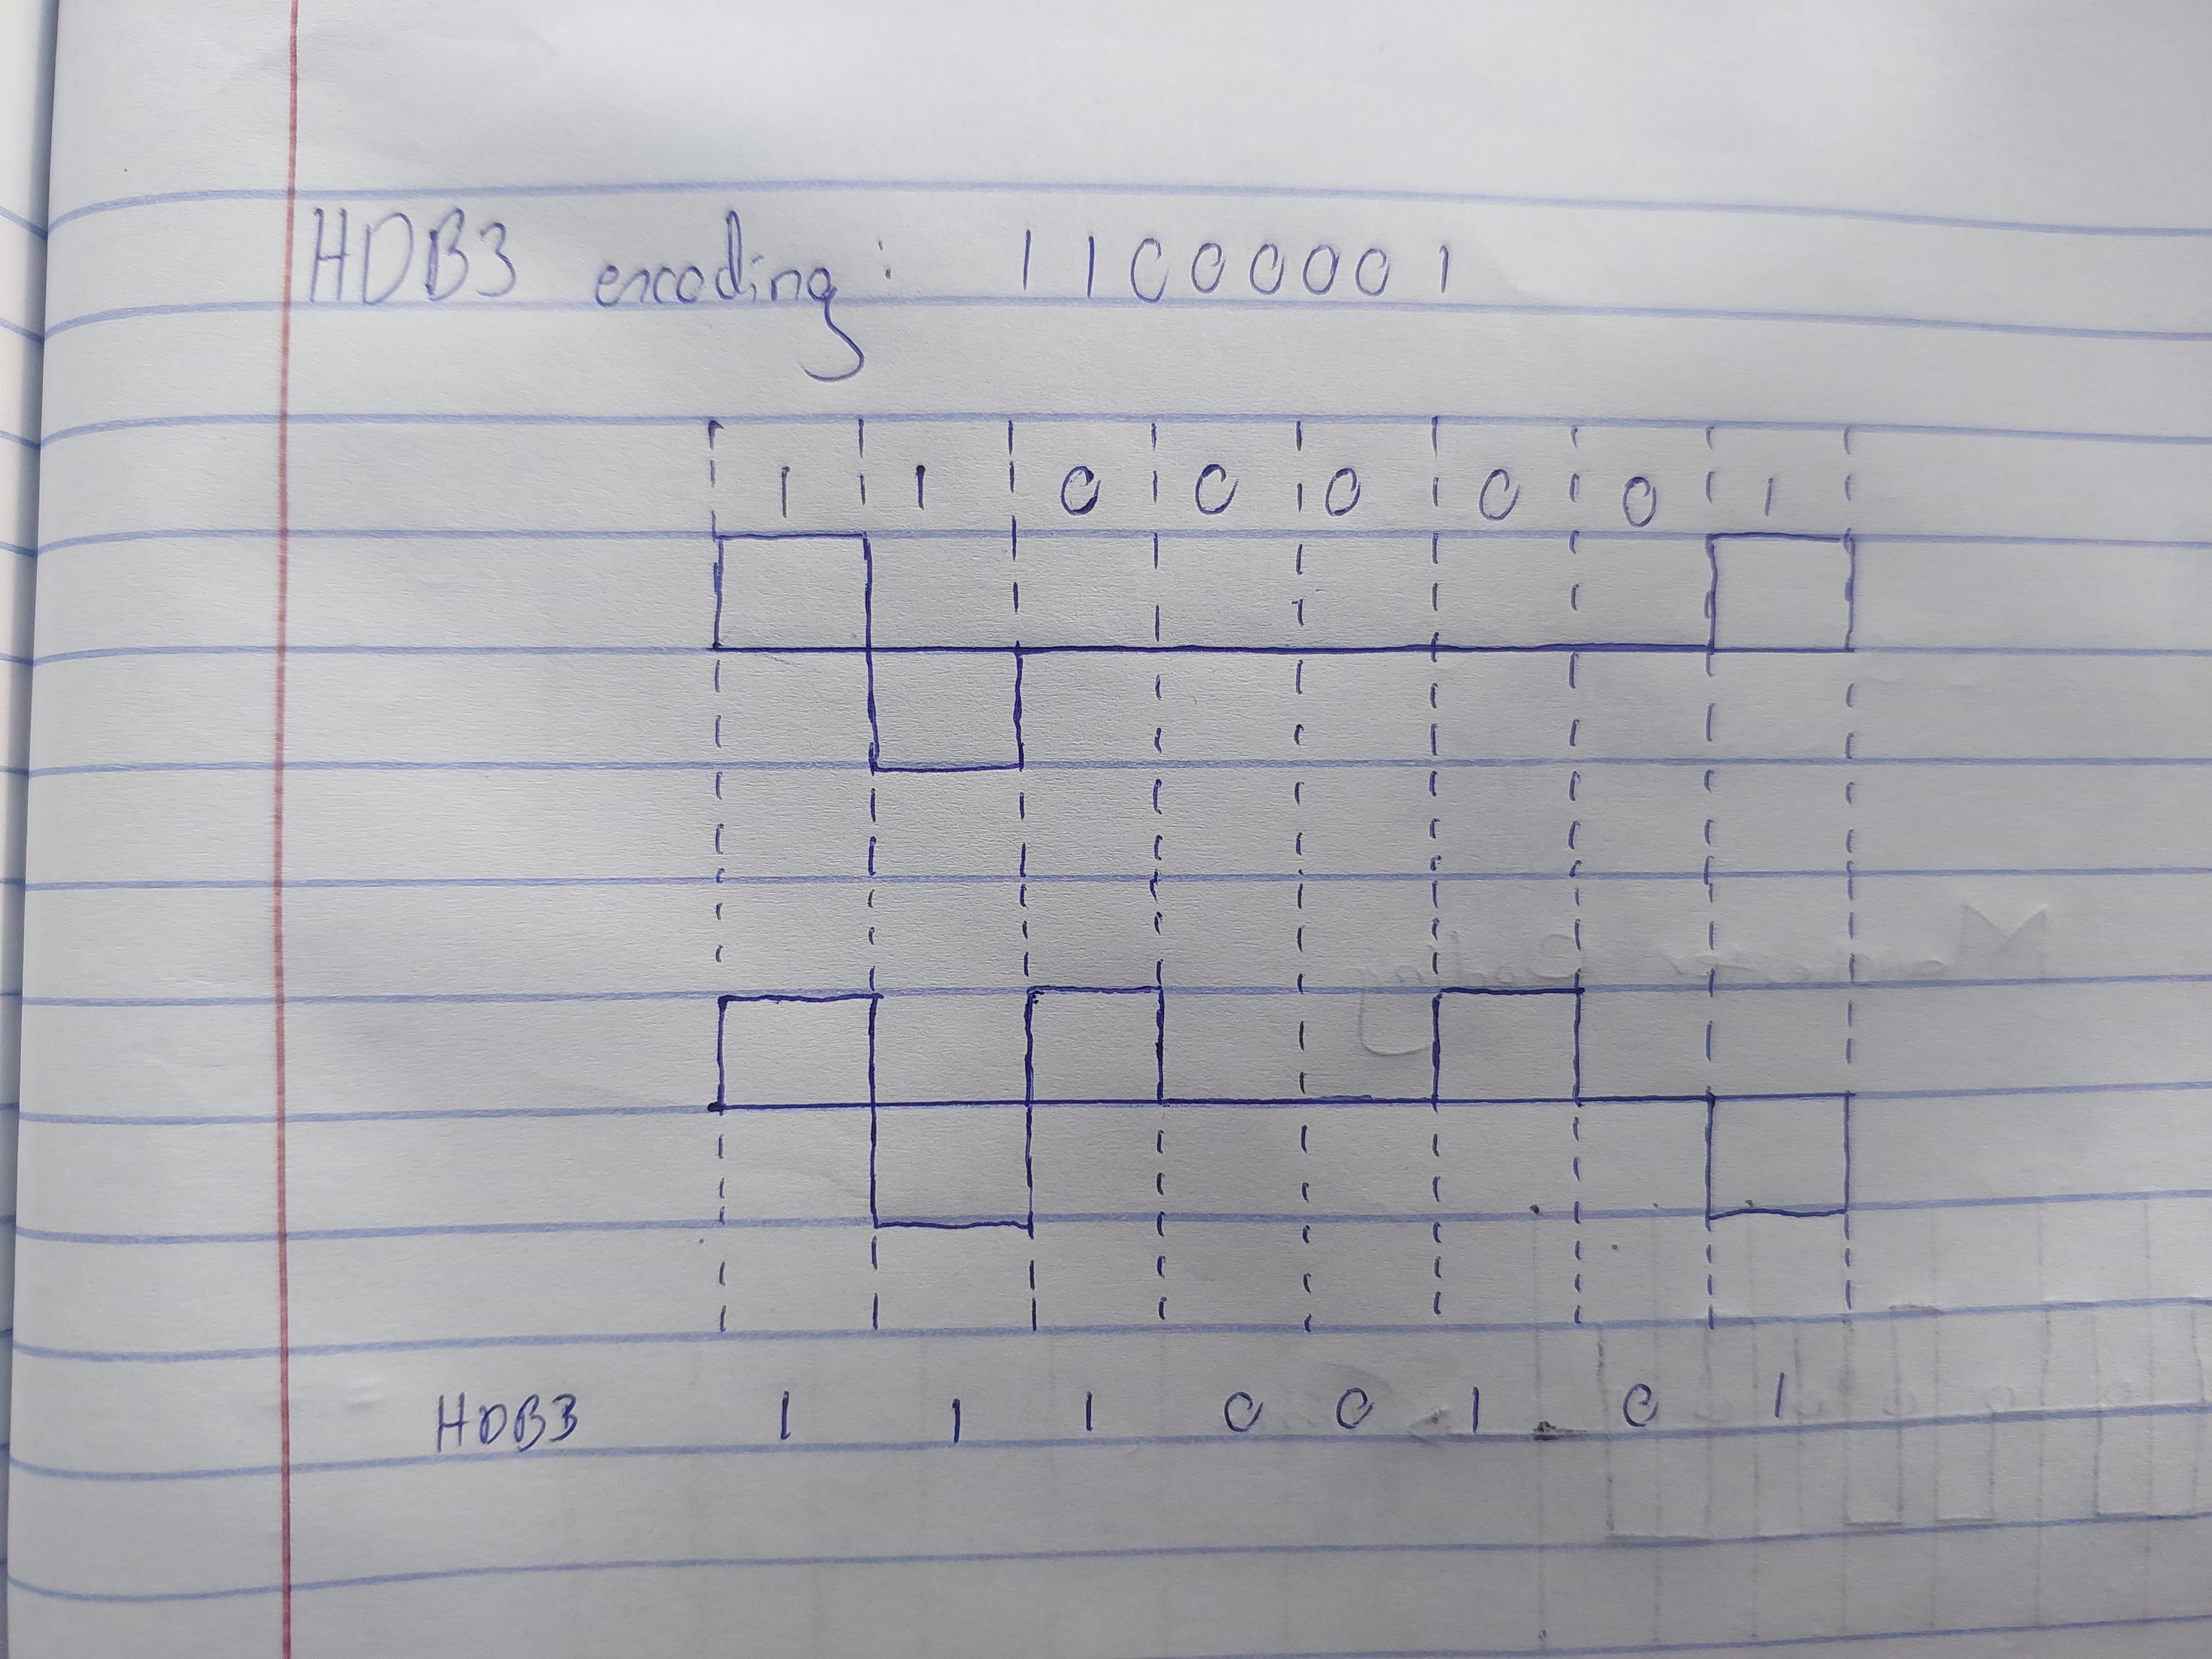 HDB3 encoding: 11000001
1 1 0 0 0 0 0 1
HDB3 1 1 1 0 0 1 0 1